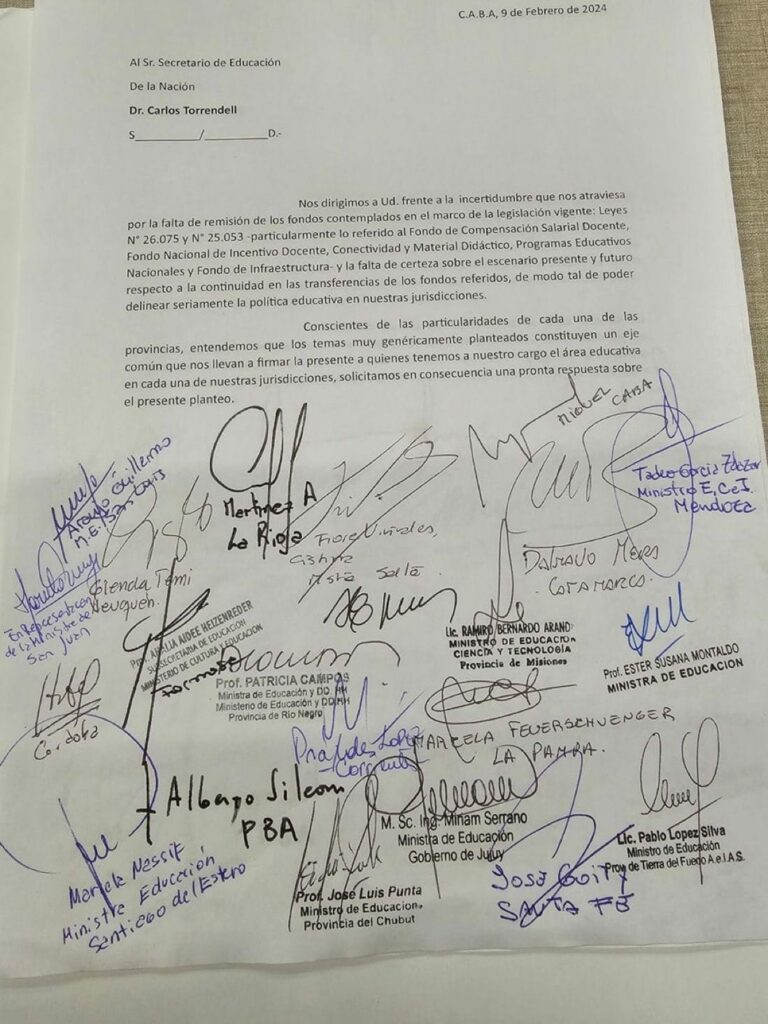 C.A.B.A, 9 de Febrero de 2024
Al Sr. Secretario de Educación
De la Nación
Dr. Carlos Torrendell
S__________/__________D.-
Nos dirigimos a Ud. frente a la incertidumbre que nos atraviesa
por la falta de remisión de los fondos contemplados en el marco de la legislación vigente: Leyes
N° 26.075 y N° 25.053 -particularmente lo referido al Fondo de Compensación Salarial Docente,
Fondo Nacional de Incentivo Docente, Conectividad y Material Didáctico, Programas Educativos
Nacionales y Fondo de Infraestructura- y la falta de certeza sobre el escenario presente y futuro
respecto a la continuidad en las transferencias de los fondos referidos, de modo tal de poder
delinear seriamente la política educativa en nuestras jurisdicciones.
Conscientes de las particularidades de cada una de las
provincias, entendemos que los temas muy genéricamente planteados constituyen un eje
común que nos llevan a firmar la presente a quienes tenemos a nuestro cargo el área educativa
en cada una de nuestras jurisdicciones, solicitamos en consecuencia una pronta respuesta sobre
el presente planteo.
MIGUEL
CABA
Araujo Guillermo
M.E. San Luis
Martinez A
La Rioja
Fiore Viñuales,
Cistina
Salta
Tadeo Garcia Zalazar
Ministro E, C e I.
Mendoza
DALMACIO MERA
CATAMARCA.
Glenda Temi
Neuquén.
En Representación
de la Ministra de
San Juan
Prof. ANALIA AIDEE HEIZENREDER
SUBSECRETARIA DE EDUCACIÓN
MINISTERIO DE CULTURA Y EDUCACION
Formosa
Lic. RAMIRO BERNARDO ARANDA
MINISTRO DE EDUCACIÓN
CIENCIA Y TECNOLOGÍA
Provincia de Misiones
Prof. ESTER SUSANA MONTALDO
MINISTRA DE EDUCACION
Prof. PATRICIA CAMPOS
Ministra de Educación y DD.HH
Ministerio de Educación y DD.HH
Provincia de Río Negro
Cordoba
Práxedes Lopez
Corrientes
MARCELA FEUERSCHVENGER
LA PAMPA.
Alberto Sileoni
PBA
M. Sc. Ing. Miriam Serrano
Ministra de Educación
Gobierno de Jujuy
Lic. Pablo Lopez Silva
Ministro de Educación
Prov. de Tierra del Fuego A.e I.A.S.
Mariela Nassif
Ministra Educación
Santiago del Estero
Prof. José Luis Punta
Ministro de Educacion
Provincia del Chubut
JOSE GOITY
SANTA FE